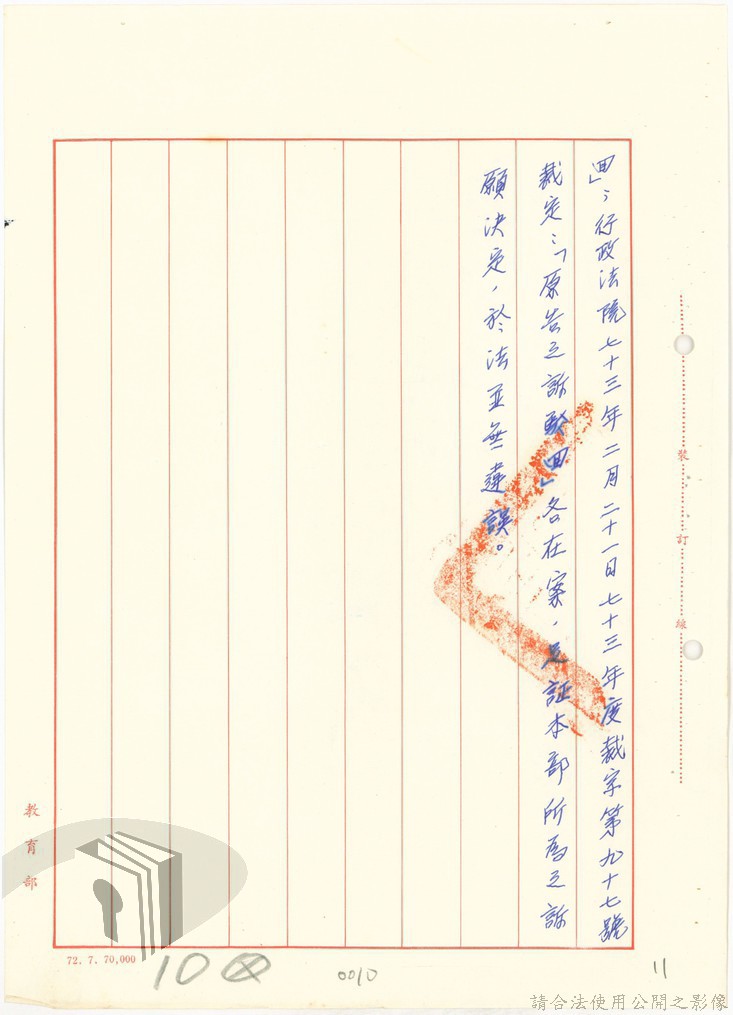 回」，行政法院七十三年二月二十一日七十三年度裁字第九十七號
裁定：「原告之訴駁回」各在案，足証本部所為之訴
願決定，於法並無違誤。
裝訂線
教育部
72. 7. 70,000
100
0010
11
請合法使用公開之影像